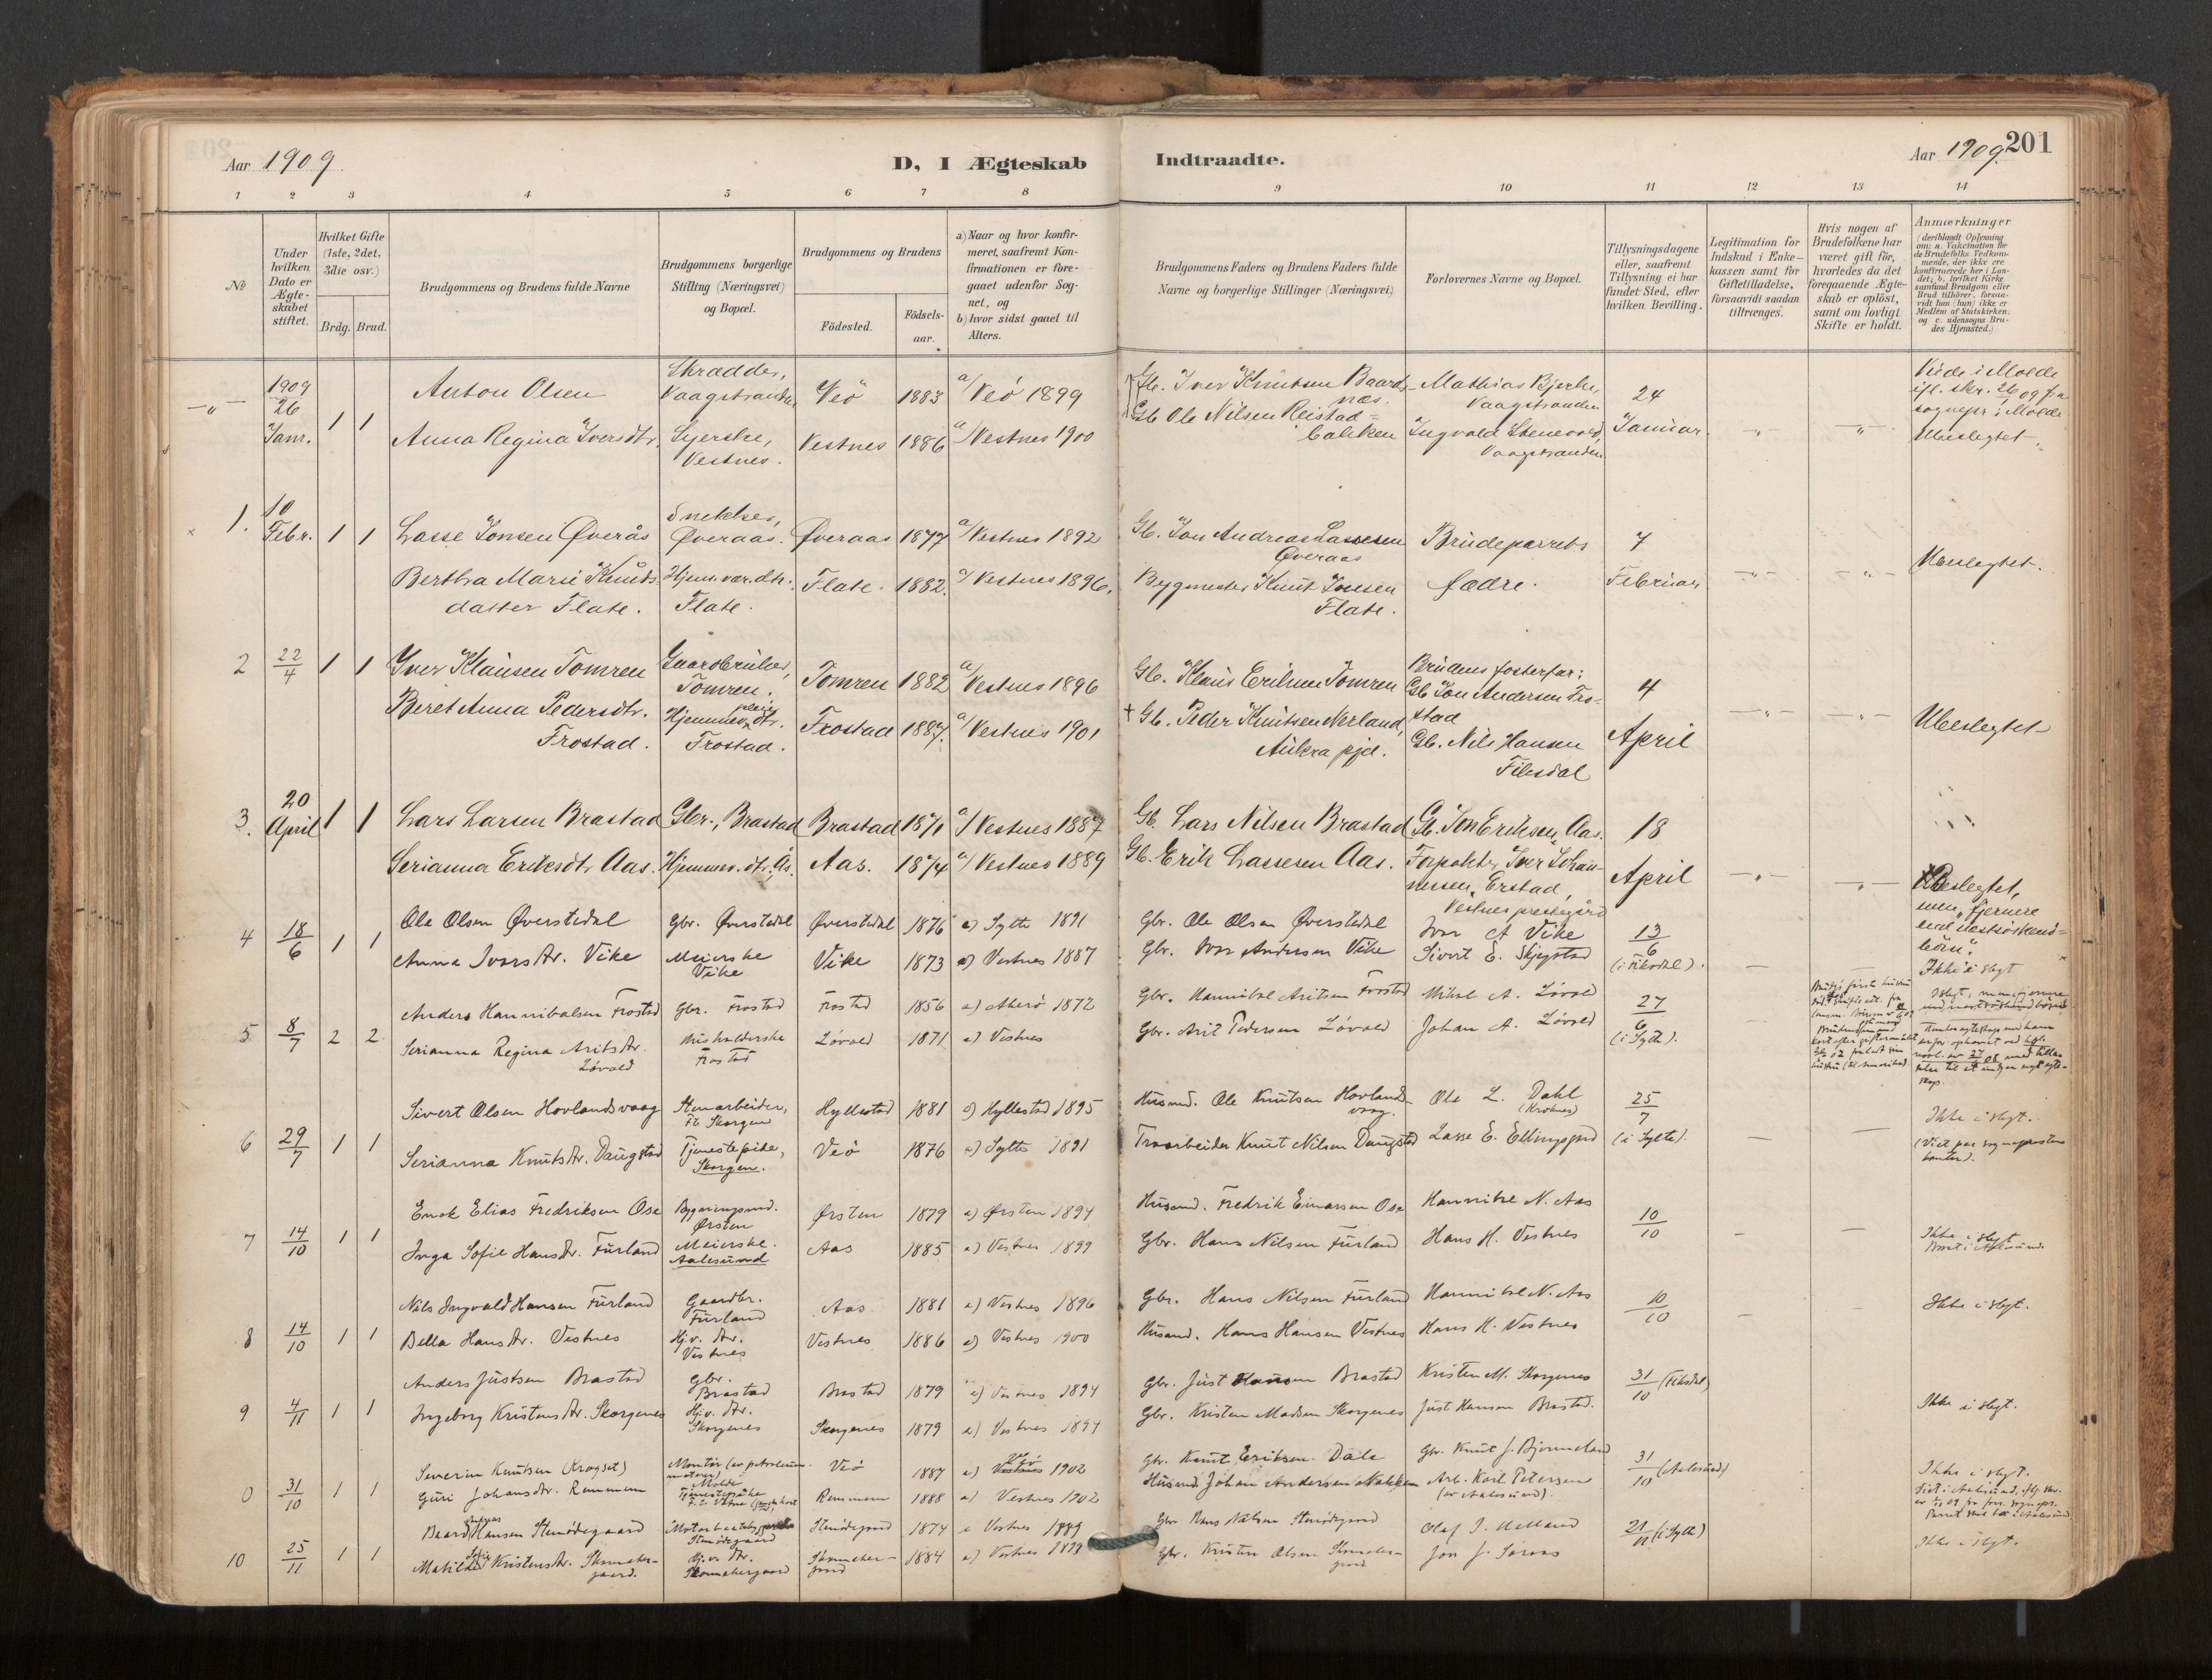 Aar 1909
D, I Ægteskab
Indtraadte.
Aar 1909.
201
1 2 3 4 5 6 7 8
9 10 11 12 13 14
No
Under hvilken Dato er Ægteskabet stiftet.
Hvilket Gifte (1ste, 2det, 3die osv.)
Brdg. Brud.
Brudgommens og Brudens fulde Navne
Brudgommens borgerlige Stilling (Næringsvei) og Bopæl.
Brudgommens og Brudens
Födested.
Födsels-aar.
a) Naar og hvor konfir-
meret, saafremt Kon-
firmationen er fore-
gaaet udenfor Sog-
net, og
b) hvor sidst gaaet til
Alters.
Brudgommens Faders og Brudens Faders fulde
Navne og borgerlige Stillinger (Næringsvei)
Forlovernes Navne og Bopæl.
Tillysningsdagene
eller, saafremt
Tillysning ei har
fundet Sted, efter
hvilken Bevilling.
Legitimation for
Indskud i Enke-
kassen samt for
Giftetilladelse,
forsaavidt saadan
tiltrænges.
Hvis nogen af
Brudefolkene har
været gift för,
hvorledes da det
foregaaende Ægte-
skab er oplöst,
samt om lovligt
Skifte er holdt.
Anmærkninger
(deriblandt Oplysning
om: a. Vakcination for
de Brudefolks Vedkom-
mende, der ikke ere
konfirmerede her i Lan-
det; b. hvilket Kirke
samfund Brudgom eller
Brud tilhörer, forsaa-
vidt han (hun) ikke er
Medlem af Statskirken.
og c. udensogns Bru-
des Hjemsted.)
—„— 1909 26 Janr. 1 1 Anton Olsen Skrædder, Vaagstranden Veö 1883 a/ Veö 1899 Gb. Iver Knutsen Baardsnæs. Mathias Bjerke, Vaagstranden 24 Januar —„— —„— Viede i Molde
Anna Regina Iversdtr. Syerske, Vestnes. Vestnes 1886 a/ Vestnes 1900 Gb. Ole Nilsen Reistadbakken Ingvald Stenevold, Vaagstranden
ifl. skr. 26/1 09 fra
sognepr. i Molde
Ubeslegtet.
1. 10 Febr. 1 1 Lasse Jonsen Øverås Snekker, Øveraas. Øveraas 1877 a/ Vestnes 1892 Gb. Jon Andreas Lassesen Øveraas Brudeparrets fædre. 7 Februar —„— —„— Ubeslegtet.
Bertha Marie Knuds-
datter Flate. Hjem.vær.dtr. Flate. Flate. 1882. a/ Vestnes 1896. Bygmester Knut Jonsen Flate.
2 22/4 1 1 Iver Klausen Tomren Gaardbruker, Tomren. Tomren 1882 a/ Vestnes 1896 Gb. Klaus Eriksen Tomren Brudens fosterfar: Gb. Jon Andersen Frostad 4 April —„— —„— Ubeslegtet
Beret Anna Pedersdtr.
Frostad. Hjemmev. pleiedtr. Frostad. Frostad 1887. a/ Vestnes 1901 † Gb. Peder Knutsen Nerland, Aukra pjd. Gb. Nils Hansen Fiksdal
3. 20 April 1 1 Lars Larsen Brastad Gbr., Brastad Brastad 1871 a/ Vestnes 1887 Gb. Lars Nilsen Brastad Gb. Jon Eriksen Aas. 18 April —„— —„—
Serianna Eriksdtr. Aas. Hjemmev. dtr. Ås. Aas. 1874 a/ Vestnes 1889 Gb. Erik Lassesen Aas. Forpakter Iver Johannessen, Erstad, Vestnes prestegård
Ubeslegtet,
men „fjernere
end næstsøskend-
børn".
4 18/6 1 1 Ole Olsen Øverstedal Gbr. Øverstedal Øverstedal 1876 a) Sylte 1891 Gbr. Ole Olsen Øverstedal Ivar A Vike 13/6 (i Fiksdal). — — Ikke i slegt
Anna Ivarsdtr. Vike Meierske Vike Vike 1873 a) Vestnes 1887 Gbr. Ivar Andersen Vike Sivert E. Skjegstad
5 8/7 2 2 Anders Hannibalsen Frostad Gbr. Frostad Frostad 1856 a) Akerö 1872 Gbr. Hannibal Aritsen Frostad Mikal A. Lövold 27/6 (i Sylte).
Serianna Regina Aritsdtr.
Lövold Husholderske Frostad Lövold 1871 a) Vestnes Gbr. Arit Pedersen Lövold Johan A. Lövold
6 29/7 1 1 Sivert Olsen Hovlandsvaag Stenarbeider, F.t. Skorgen Hyllestad 1881 a) Hyllestad 1895 Husmd. Ole Knutsen Hovlandsvaag. Ole L. Dahl (Kroknes) 25/7 (i Sylte). — — Ikke i slegt.
Serianna Knutsdtr. Daugstad Tjenestepike, Skorgen. Veö 1876 a) Sylte 1891 Traarbeider Knut Nilsen Daugstad Lasse E. Ellingsgrd
(Viet paa sogneprestens
kontor).
7 14/10 1 1 Enok Elias Fredriksen Ose Bygningsmd. Ørsten Ørsten 1879 a) Ørsten 1894 Husmd. Fredrik Einarsen Ose Hannibal N. Aas 10/10 — — Ikke i slegt
Inga Sofie Hansdtr. Furland Meierske. Aalesund Aas 1885 a) Vestnes 1899 Gbr. Hans Nilsen Furland Hans H. Vestnes
8 14/10 1 1 Nils Ingvald Hansen Furland Gaardbr. Furland Aas 1881 a) Vestnes 1896 Gbr. Hans Nilsen Furland Hannibal N. Aas 10/10 — — Ikke i slegt.
Bella Hansdtr. Vestnes Hj.v. dtr. Vestnes Vestnes 1886 a) Vestnes 1900 Husmd. Hans Hansen Vestnes Hans H. Vestnes
9 4/11 1 1 Anders Justsen Brastad Gbr. Brastad Brastad 1879 a) Vestnes 1894 Gbr. Just Hansen Brastad Kristen M. Skorgenes 31/10 (Fiksdal) Ikke i slegt.
Ingeborg Kristensdtr. Skorgenes Hj.v. dtr. Skorgenes Skorgenes 1879 a) Vestnes 1894 Gbr. Kristen Madsen Skorgenes Just Hansen Brastad.
0 31/10 1 1 Severin Knutsen (Kragset) Montör (av petroleumsmotorer) Molde Veö 1887 a) Veö 1902 Gbr. Knut Eriksen Dale Gbr. Knut J. Bjermeland 31/10 (Aalesund) Ikke i slegt.
Guri Johansdtr. Remmem Tjenestepike Remmem 1888 a) Vestnes 1902 Husmd. Johan Andersen Nakken Arb. Karl Petersen (av Aalesund).
10 25/11 1 1 Baard Andreas Hansen Stenödegaard Stenödegaard Stenödegaard 1874 a Vestnes 1889 Gbr. Hans Nilsen Stenödegaard Olaf J. Helland 21/11 (i Sylte) Ikke i slegt.
Matilde Sofie Kristensdtr. Skomaker-
gaard. Hj.v. dtr. Skomakergaard Skomakergaard 1884 a) Vestnes 1899 Gbr. Kristen Olsen Skomakergaard Jon J. Soraas